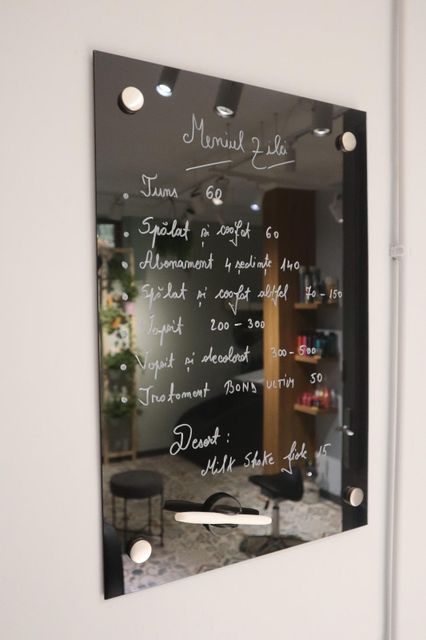 Meniul Zilei
• Tuns 60
• Spălat și coafat 60
• Abonament 4 ședințe 140
• Spălat și coafat altfel 70-150
• Vopsit 200-300
• Vopsit și decolorat 300-500
• Tratament BOND ULTIM 50
Desert:
Milk Shake fiole 15